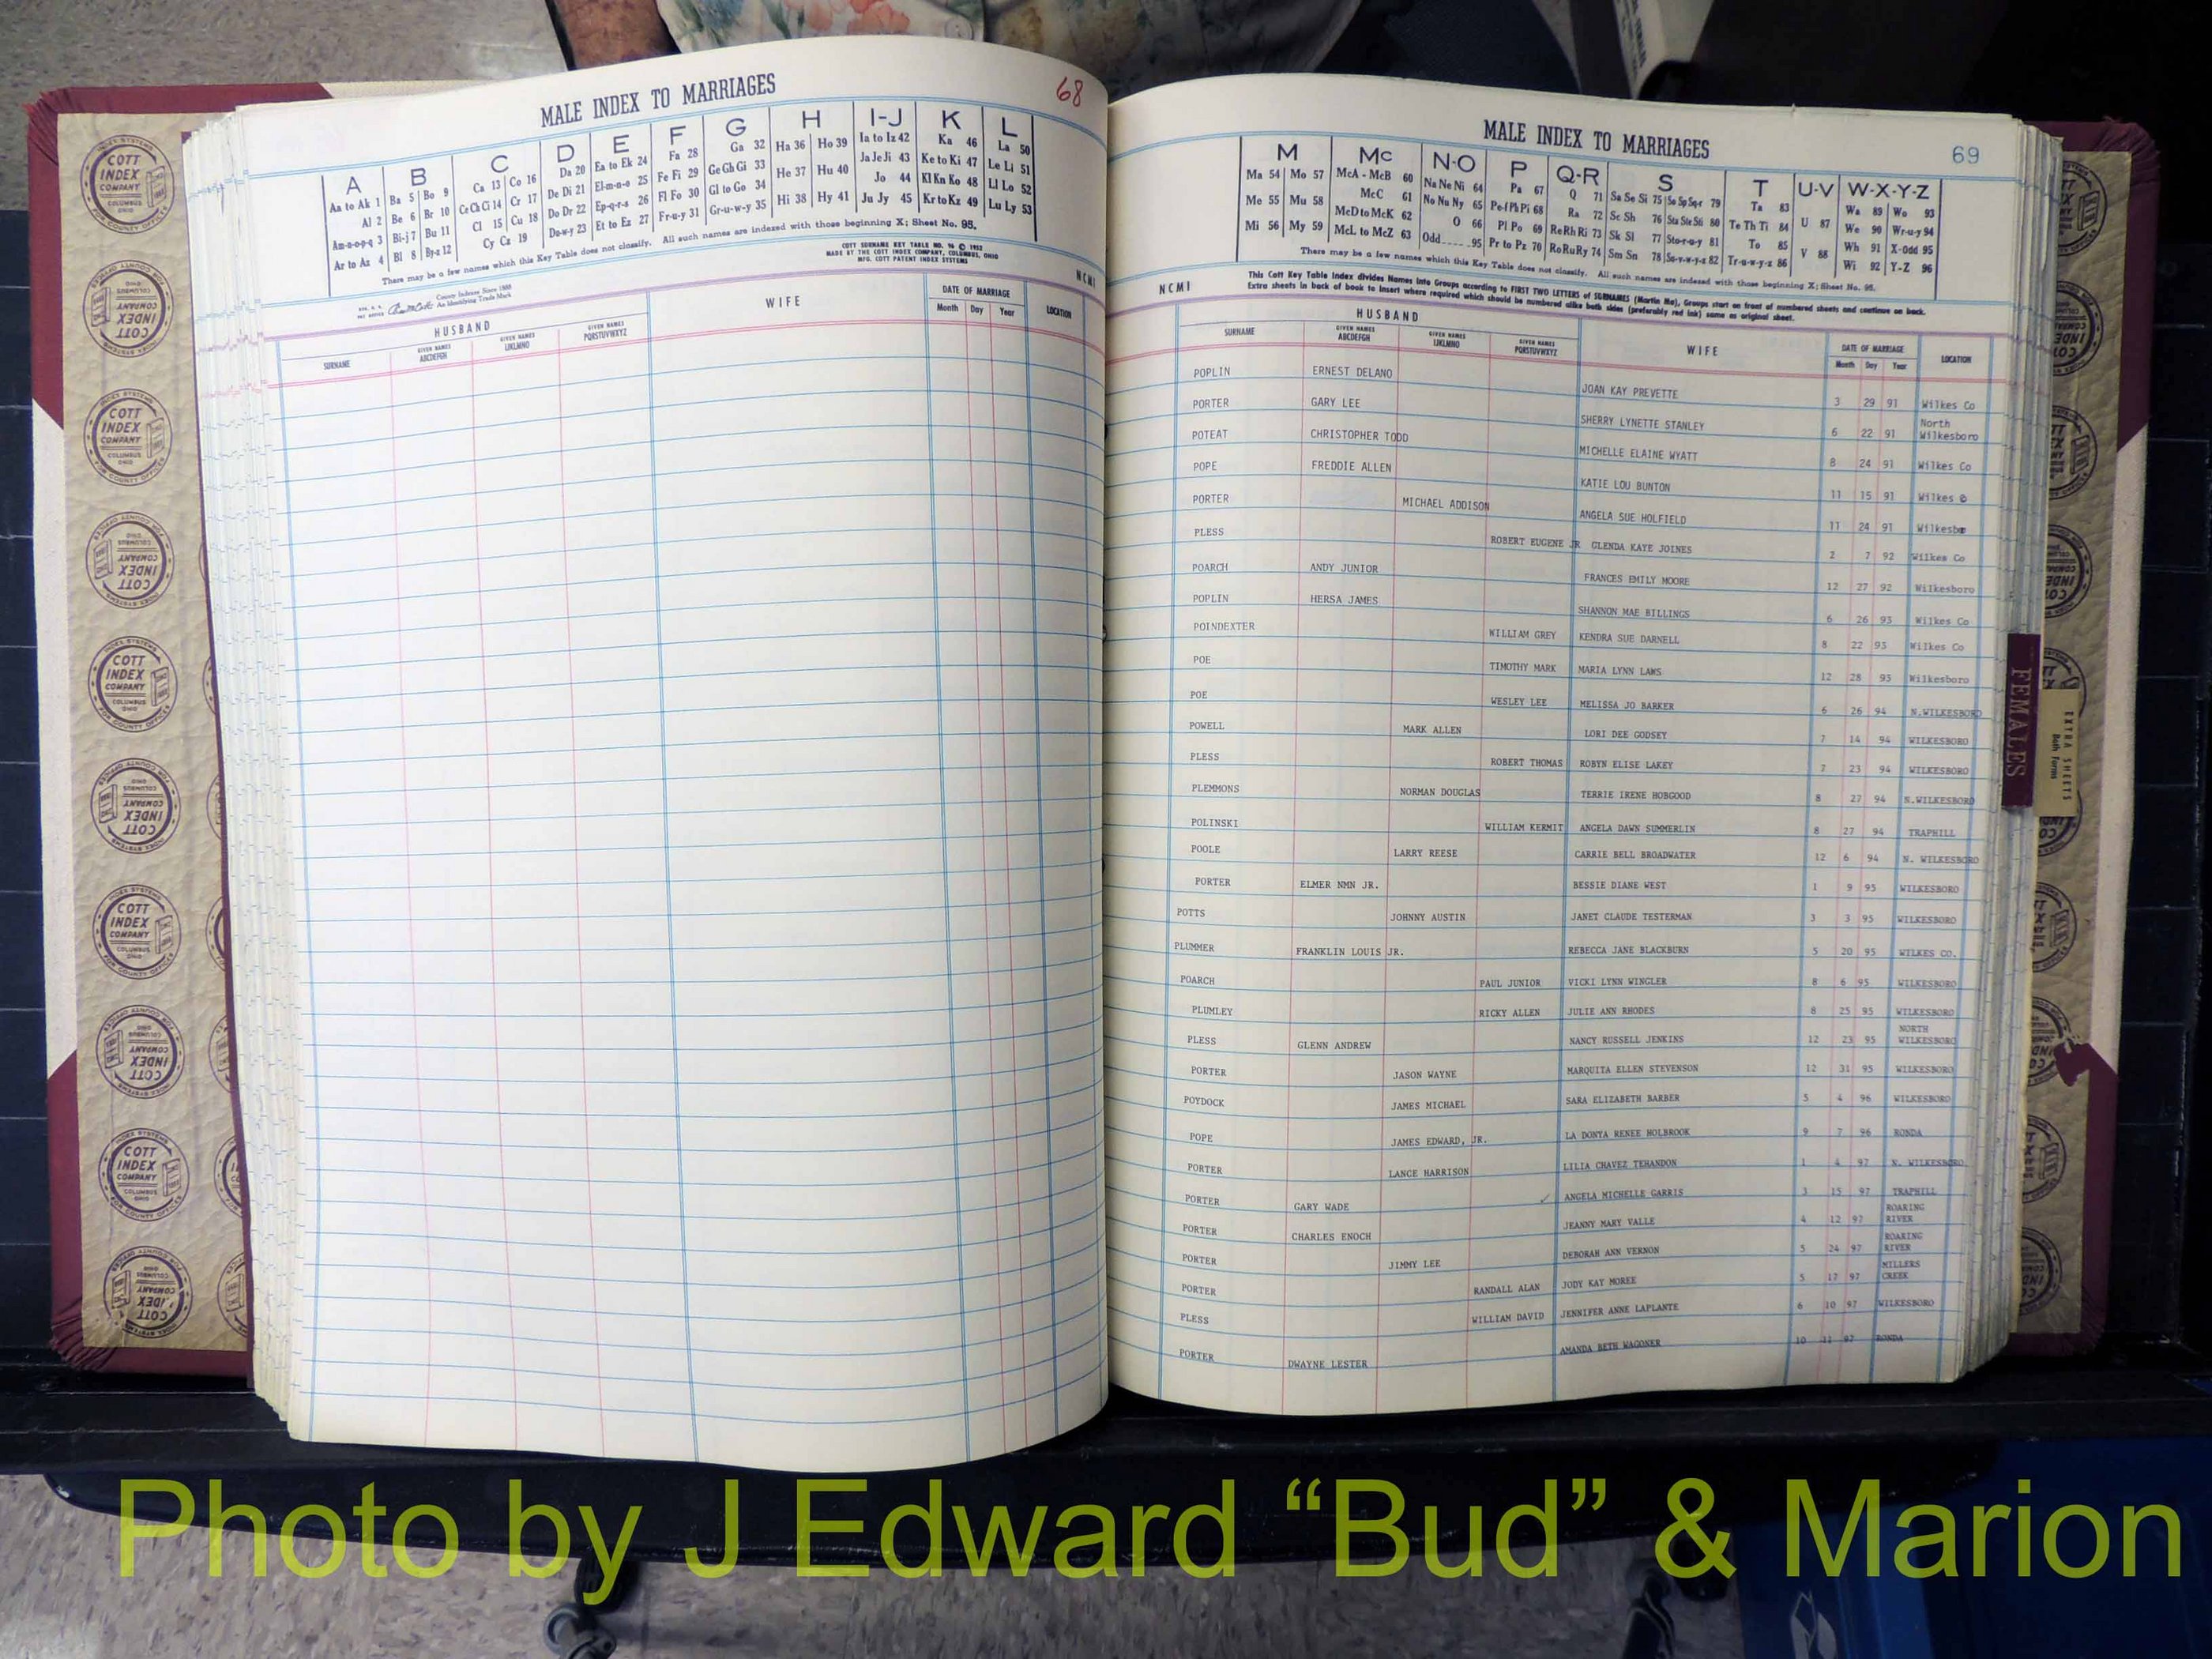 MALE INDEX TO MARRIAGES
68
A B C D E F G H I-J K L
Aa to Ak 1 Ba 5 Bo 9 Ca 13 Co 16 Da 20 Ea to Ek 24 Fa 28 Ga 32 Ha 36 Ho 39 Ia to Iz 42 Ka 46 La 50
Al 2 Be 6 Br 10 Ce Ch Ci 14 Cr 17 De Di 21 El-m-n-o 25 Fe Fi 29 Ge Gh Gi 33 He 37 Hu 40 Ja Je Ji 43 Ke to Ki 47 Le Li 51
Am-n-o-p-q 3 Bi-j 7 Bu 11 Cl 15 Cu 18 Do Dr 22 Ep-q-r-s 26 Fl Fo 30 Gl to Go 34 Hi 38 Hy 41 Jo 44 Kl Kn Ko 48 Ll Lo 52
Ar to Az 4 Bl 8 By-z 12 Cy Cz 19 Du-w-y 23 Et to Ez 27 Fr-u-y 31 Gr-u-w-y 35 Ju Jy 45 Kr to Kz 49 Lu Ly 53
There may be a few names which this Key Table does not classify. All such names are indexed with those beginning X; Sheet No. 95.
COTT SURNAME KEY TABLE NO. 96 © 1952
MADE BY THE COTT INDEX COMPANY, COLUMBUS, OHIO
MFG. COTT PATENT INDEX SYSTEMS
County Indexes Since 1888
An Identifying Trade Mark
NCMI
HUSBAND WIFE DATE OF MARRIAGE LOCATION
SURNAME GIVEN NAMES ABCDEFGH GIVEN NAMES IJKLMNO GIVEN NAMES PQRSTUVWXYZ Month Day Year
MALE INDEX TO MARRIAGES
69
M Mc N-O P Q-R S T U-V W-X-Y-Z
Ma 54 Mo 57 McA - McB 60 Na Ne Ni 64 Pa 67 Q 71 Sa Se Si 75 So Sp Sq-r 79 Ta 83 Wa 89 Wo 93
Me 55 Mu 58 McC 61 No Nu Ny 65 Pe-f Ph Pi 68 Ra 72 Sc Sh 76 Sta Ste Sti 80 Te Th Ti 84 U 87 We 90 Wr-u-y 94
Mi 56 My 59 McD to McK 62 O 66 Pl Po 69 Re Rh Ri 73 Sk Sl 77 Sto-r-u-y 81 To 85 Wh 91 X-Odd 95
McL to McZ 63 Odd 95 Pr to Pz 70 Ro Ru Ry 74 Sm Sn 78 Su-v-w-y-z 82 Tr-u-w-y-z 86 V 88 Wi 92 Y-Z 96
There may be a few names which this Key Table does not classify. All such names are indexed with those beginning X; Sheet No. 95.
This Cott Key Table Index divides Names into Groups according to FIRST TWO LETTERS of SURNAMES (Martin Ma), Groups start on front of numbered sheets and continue on back.
Extra sheets in back of book to insert where required which should be numbered alike both sides (preferably red ink) same as original sheet.
NCMI
HUSBAND WIFE DATE OF MARRIAGE LOCATION
SURNAME GIVEN NAMES ABCDEFGH GIVEN NAMES IJKLMNO GIVEN NAMES PQRSTUVWXYZ Month Day Year
POPLIN ERNEST DELANO JOAN KAY PREVETTE 3 29 91 Wilkes Co
PORTER GARY LEE SHERRY LYNETTE STANLEY 6 22 91 North Wilkesboro
POTEAT CHRISTOPHER TODD MICHELLE ELAINE WYATT 8 24 91 Wilkes Co
POPE FREDDIE ALLEN KATIE LOU BUNTON 11 15 91 Wilkes
PORTER MICHAEL ADDISON ANGELA SUE HOLFIELD 11 24 91
PLESS ROBERT EUGENE JR GLENDA KAYE JOINES 2 7 92 Wilkes Co
POARCH ANDY JUNIOR FRANCES EMILY MOORE 12 27 92 Wilkesboro
POPLIN HERSA JAMES SHANNON MAE BILLINGS 6 26 93 Wilkes Co
POINDEXTER WILLIAM GREY KENDRA SUE DARNELL 8 22 93 Wilkes Co
POE TIMOTHY MARK MARIA LYNN LAWS 12 28 93 Wilkesboro
POE WESLEY LEE MELISSA JO BARKER 6 26 94 N.WILKESBORO
POWELL MARK ALLEN LORI DEE GODSEY 7 14 94 WILKESBORO
PLESS ROBERT THOMAS ROBYN ELISE LAKEY 7 23 94 WILKESBORO
PLEMMONS NORMAN DOUGLAS TERRIE IRENE HOBGOOD 8 27 94 N.WILKESBORO
POLINSKI WILLIAM KERMIT ANGELA DAWN SUMMERLIN 8 27 94 TRAPHILL
POOLE LARRY REESE CARRIE BELL BROADWATER 12 6 94 N. WILKESBORO
PORTER ELMER NMN JR. BESSIE DIANE WEST 1 9 95 WILKESBORO
POTTS JOHNNY AUSTIN JANET CLAUDE TESTERMAN 3 3 95 WILKESBORO
PLUMMER FRANKLIN LOUIS JR. REBECCA JANE BLACKBURN 5 20 95 WILKES CO.
POARCH PAUL JUNIOR VICKI LYNN WINGLER 8 6 95 WILKESBORO
PLUMLEY RICKY ALLEN JULIE ANN RHODES 8 25 95 WILKESBORO
PLESS GLENN ANDREW NANCY RUSSELL JENKINS 12 23 95 NORTH WILKESBORO
PORTER JASON WAYNE MARQUITA ELLEN STEVENSON 12 31 95 WILKESBORO
POYDOCK JAMES MICHAEL SARA ELIZABETH BARBER 5 4 96 WILKESBORO
POPE JAMES EDWARD, JR. LA DONYA RENEE HOLBROOK 9 7 96 RONDA
PORTER LANCE HARRISON LILIA CHAVEZ TEHANDON 1 4 97 N. WILKESBORO
PORTER GARY WADE ✓ ANGELA MICHELLE GARRIS 3 15 97 TRAPHILL
PORTER CHARLES ENOCH JEANNY MARY VALLE 4 12 97 ROARING RIVER
PORTER JIMMY LEE DEBORAH ANN VERNON 5 24 97 ROARING RIVER
PORTER RANDALL ALAN JODY KAY MOREE 5 17 97 MILLERS CREEK
PLESS WILLIAM DAVID JENNIFER ANNE LAPLANTE 6 10 97 WILKESBORO
PORTER DWAYNE LESTER AMANDA BETH WAGONER 10 11 97 RONDA
FEMALES
EXTRA SHEETS
Both Forms
COTT INDEX COMPANY COLUMBUS OHIO
INDEX SYSTEMS FOR COUNTY OFFICES
Photo by J Edward “Bud” & Marion